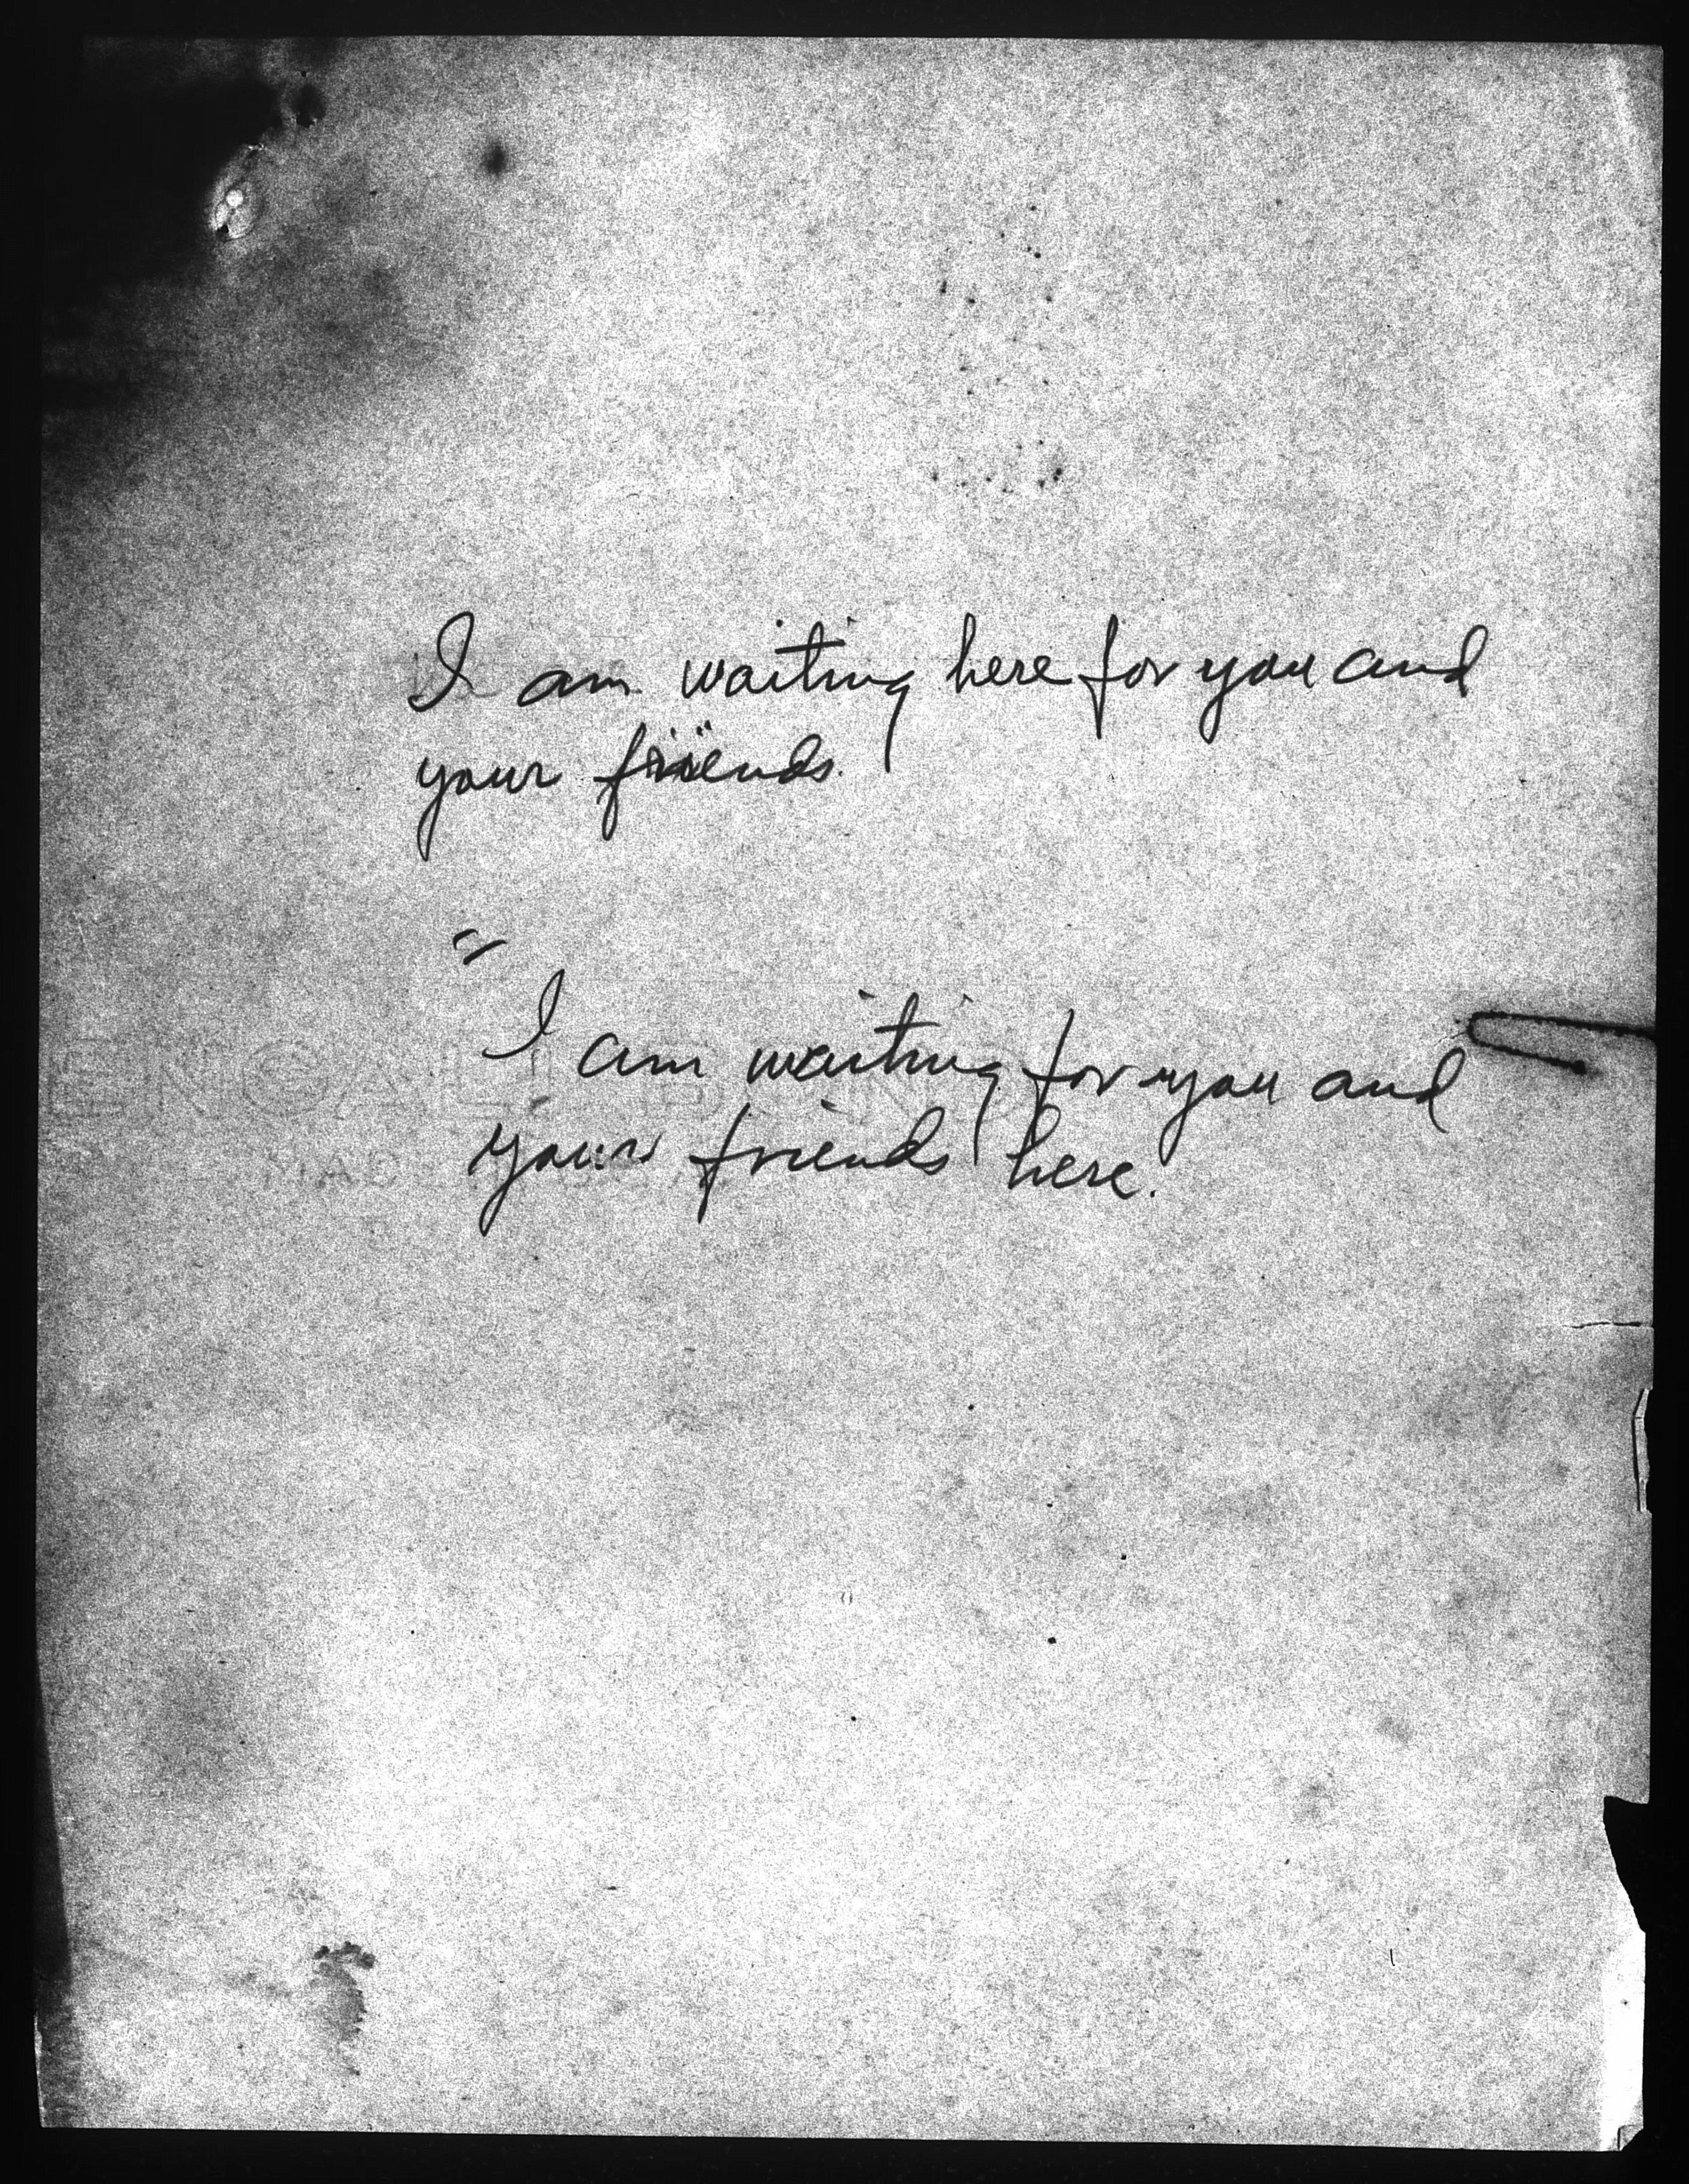 I am waiting here for you and
your friends.
"
I am waiting for you and
your friends here.